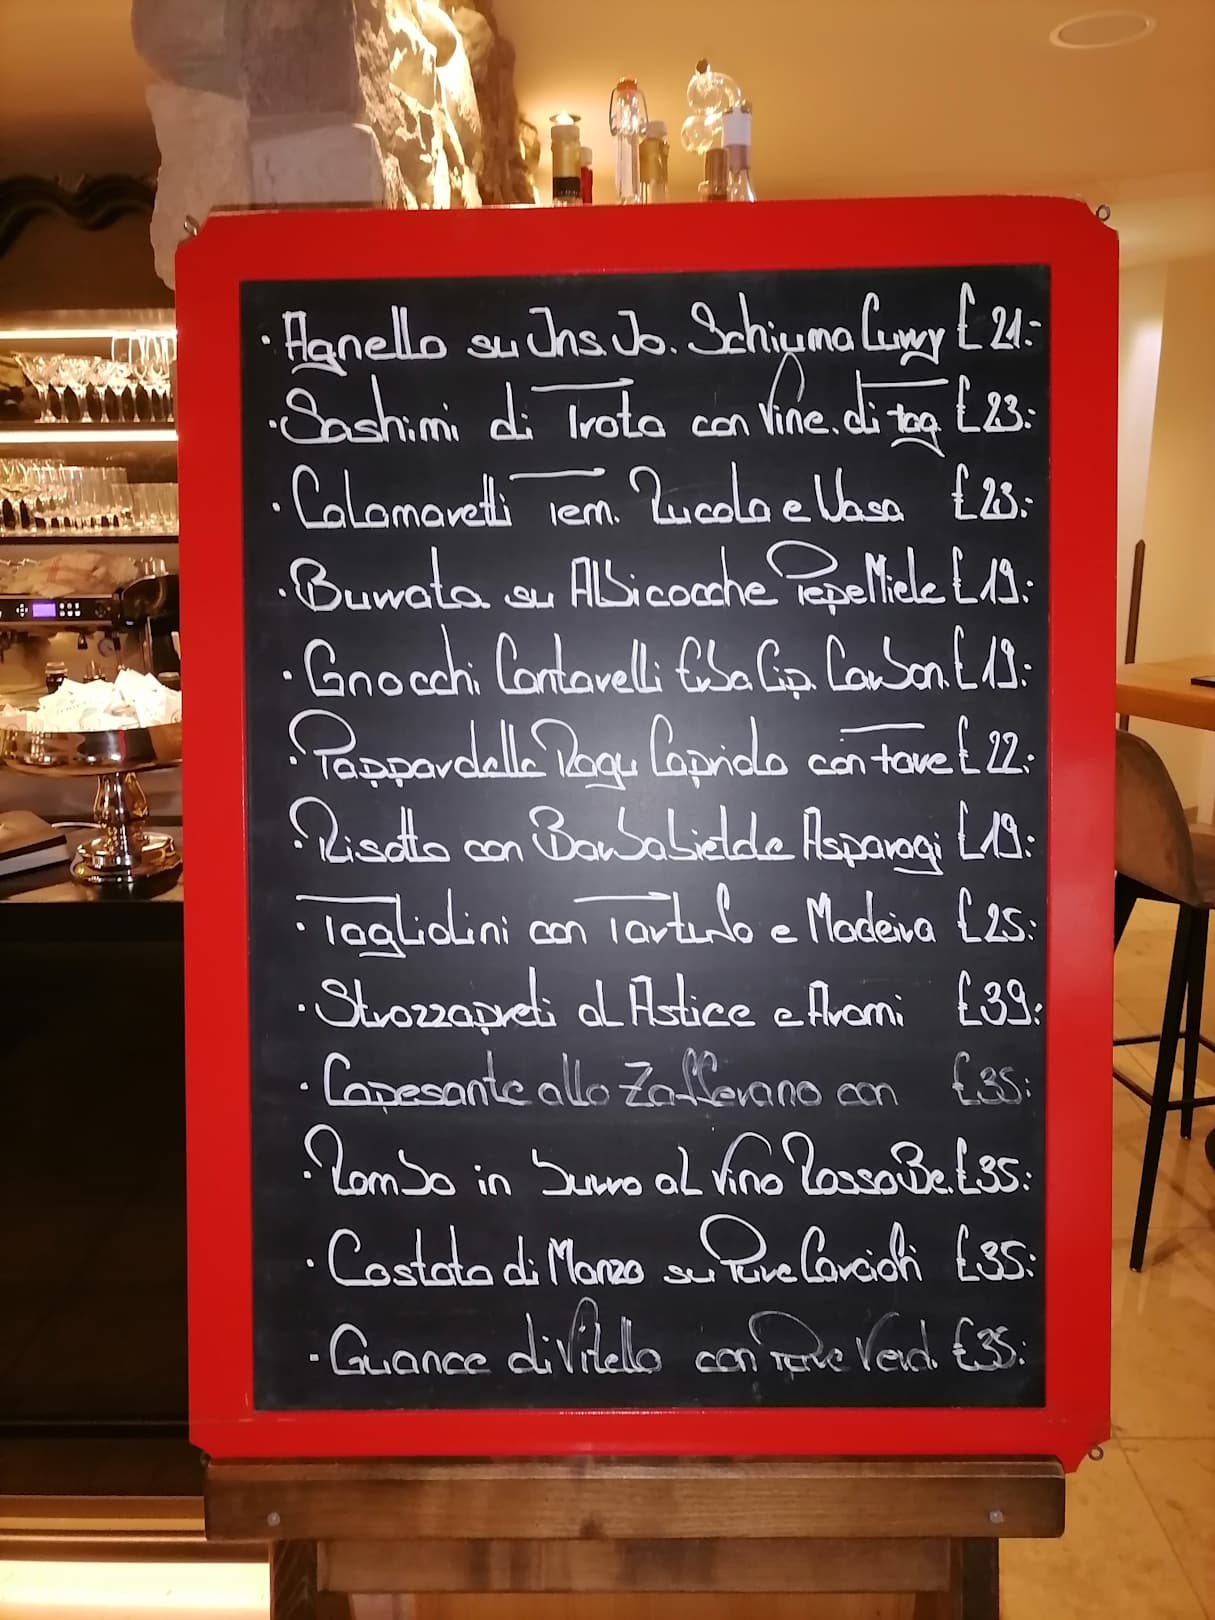 · Agnello su Ins. Jo. Schiuma Curry £ 21:
· Sashimi di Trota con Vine. di tag. £ 23:
· Calamaretti Tem. Rucola e Wasa £ 23:
· Burrata su Albicocche Pepe Miele £ 19:
· Gnocchi Contarelli Erba Cip. Carbon. £ 19:
· Pappardelle Ragu Capriolo con tave £ 22:
· Risotto con Barbabietole Asparagi £ 19:
· Tagliolini con Tartufo e Madeira £ 25:
· Strozzapreti al Astice e Aromi £ 39:
· Capesante allo Zafferano con £ 35:
· Rombo in burro al Vino Rosso Be. £ 35:
· Costata di Manzo su Pure Carciofi £ 35:
· Guance di Vitello con Pure Verd. £ 35: